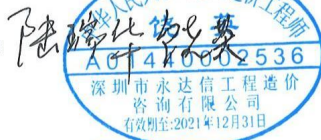 华人民 价工程师
陆瑞华
A01440002536
深圳市永达信工程造价
咨询有限公司
有效期至:2021年12月31日